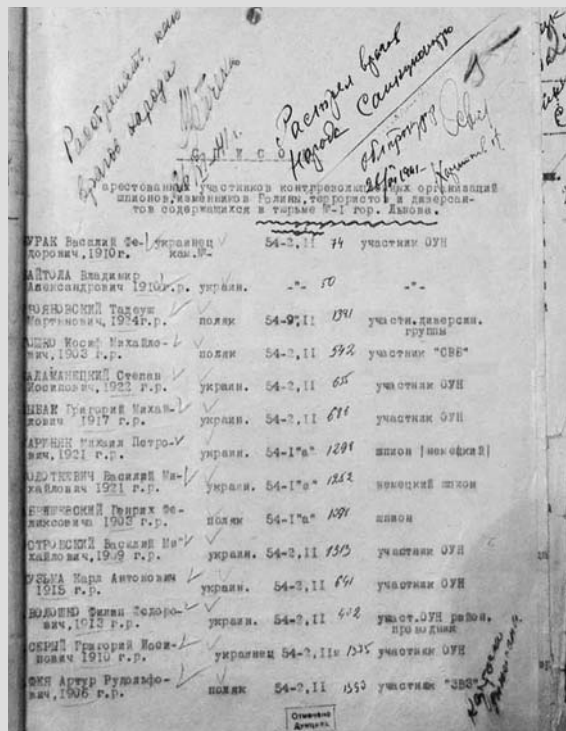 Расстрелять, как
врагов народа
Расстрел врагов
народа Санкционирую
облпрокурор
26/VI-1941г.
Список
арестованных участников контрреволюционных организаций
шпионов, изменников Родины, террористов и диверсан-
тов содержащихся в тюрьме №-I гор. Львова.
УРАК Василий Фе- украинец 54-2,II 74 участник ОУН
дорович, 1910г.
АЙТОЛА Владимир
Александрович 1910г.р. украин. -"- 50 -"-
ОЯНОВСКИЙ Тадеуш
Мартынович, 1924г.р. поляк 54-9,II 1391 участн. диверсин.
группы
ОШКО Иосиф Михайло-
вич, 1903 г.р. поляк 54-2,II 542 участник "СВБ"
АЛАМАНЕЦКИЙ Степан
Иосипович, 1922 г.р. украин. 54-2,II 655 участник ОУН
ЫВАК Григорий Михай-
лович 1917 г.р. украин. 54-2,II 686 участник ОУН
Михаил Петро-
вич, 1921 г.р. украин. 54-I"а" 1298 шпион (немецкий)
ОЛОТКЕВИЧ Василий Ми-
хайлович 1921 г.р. украин. 54-I"а" 1252 немецкий шпион
Генрих Фе-
ликсович 1903 г.р. поляк 54-I"а" шпион
СТРОВСКИЙ Василий Ми-
хайлович, 1909 г.р. украин. 54-2,II 1313 участник ОУН
УЗЬМА Карл Антонович
1915 г.р. украин. 54-2,II 641 участник ОУН
ВОЛОШКО Филип Федоро-
вич, 1913 г.р. украин. 54-2,II участ.ОУН район.
проводник
СЕРЫЙ Григорий Иоси-
пович 1910 г.р. украинец 54-2,II 1335 участник ОУН
Артур Рудольфо-
вич, 1906 г.р. поляк 54-2,II 1350 участник "ЗВЗ"
Отмечено